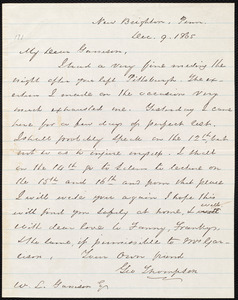 New Brighton, Penn
Dec. 9. 1865
My Dear Garrison,
I had a very fine meeting the
night after you left Pittsburgh. The ex-
ertion I made on the occasion very
much exhausted me. Yesterday I came
here for a few days of perfect rest.
I shall probably speak on the 12th, but
not so as to injure myself. I shall
on the 14th go to Salem to lecture on
the 15th and 16th and from that place
I will write you again I hope this
will find you safely at home, & well
With dear love to Fanny, Franky &
the same, if permissible to Mrs Gar-
rison, Your Own friend
Geo Thompson
W. L. Garrison Esq